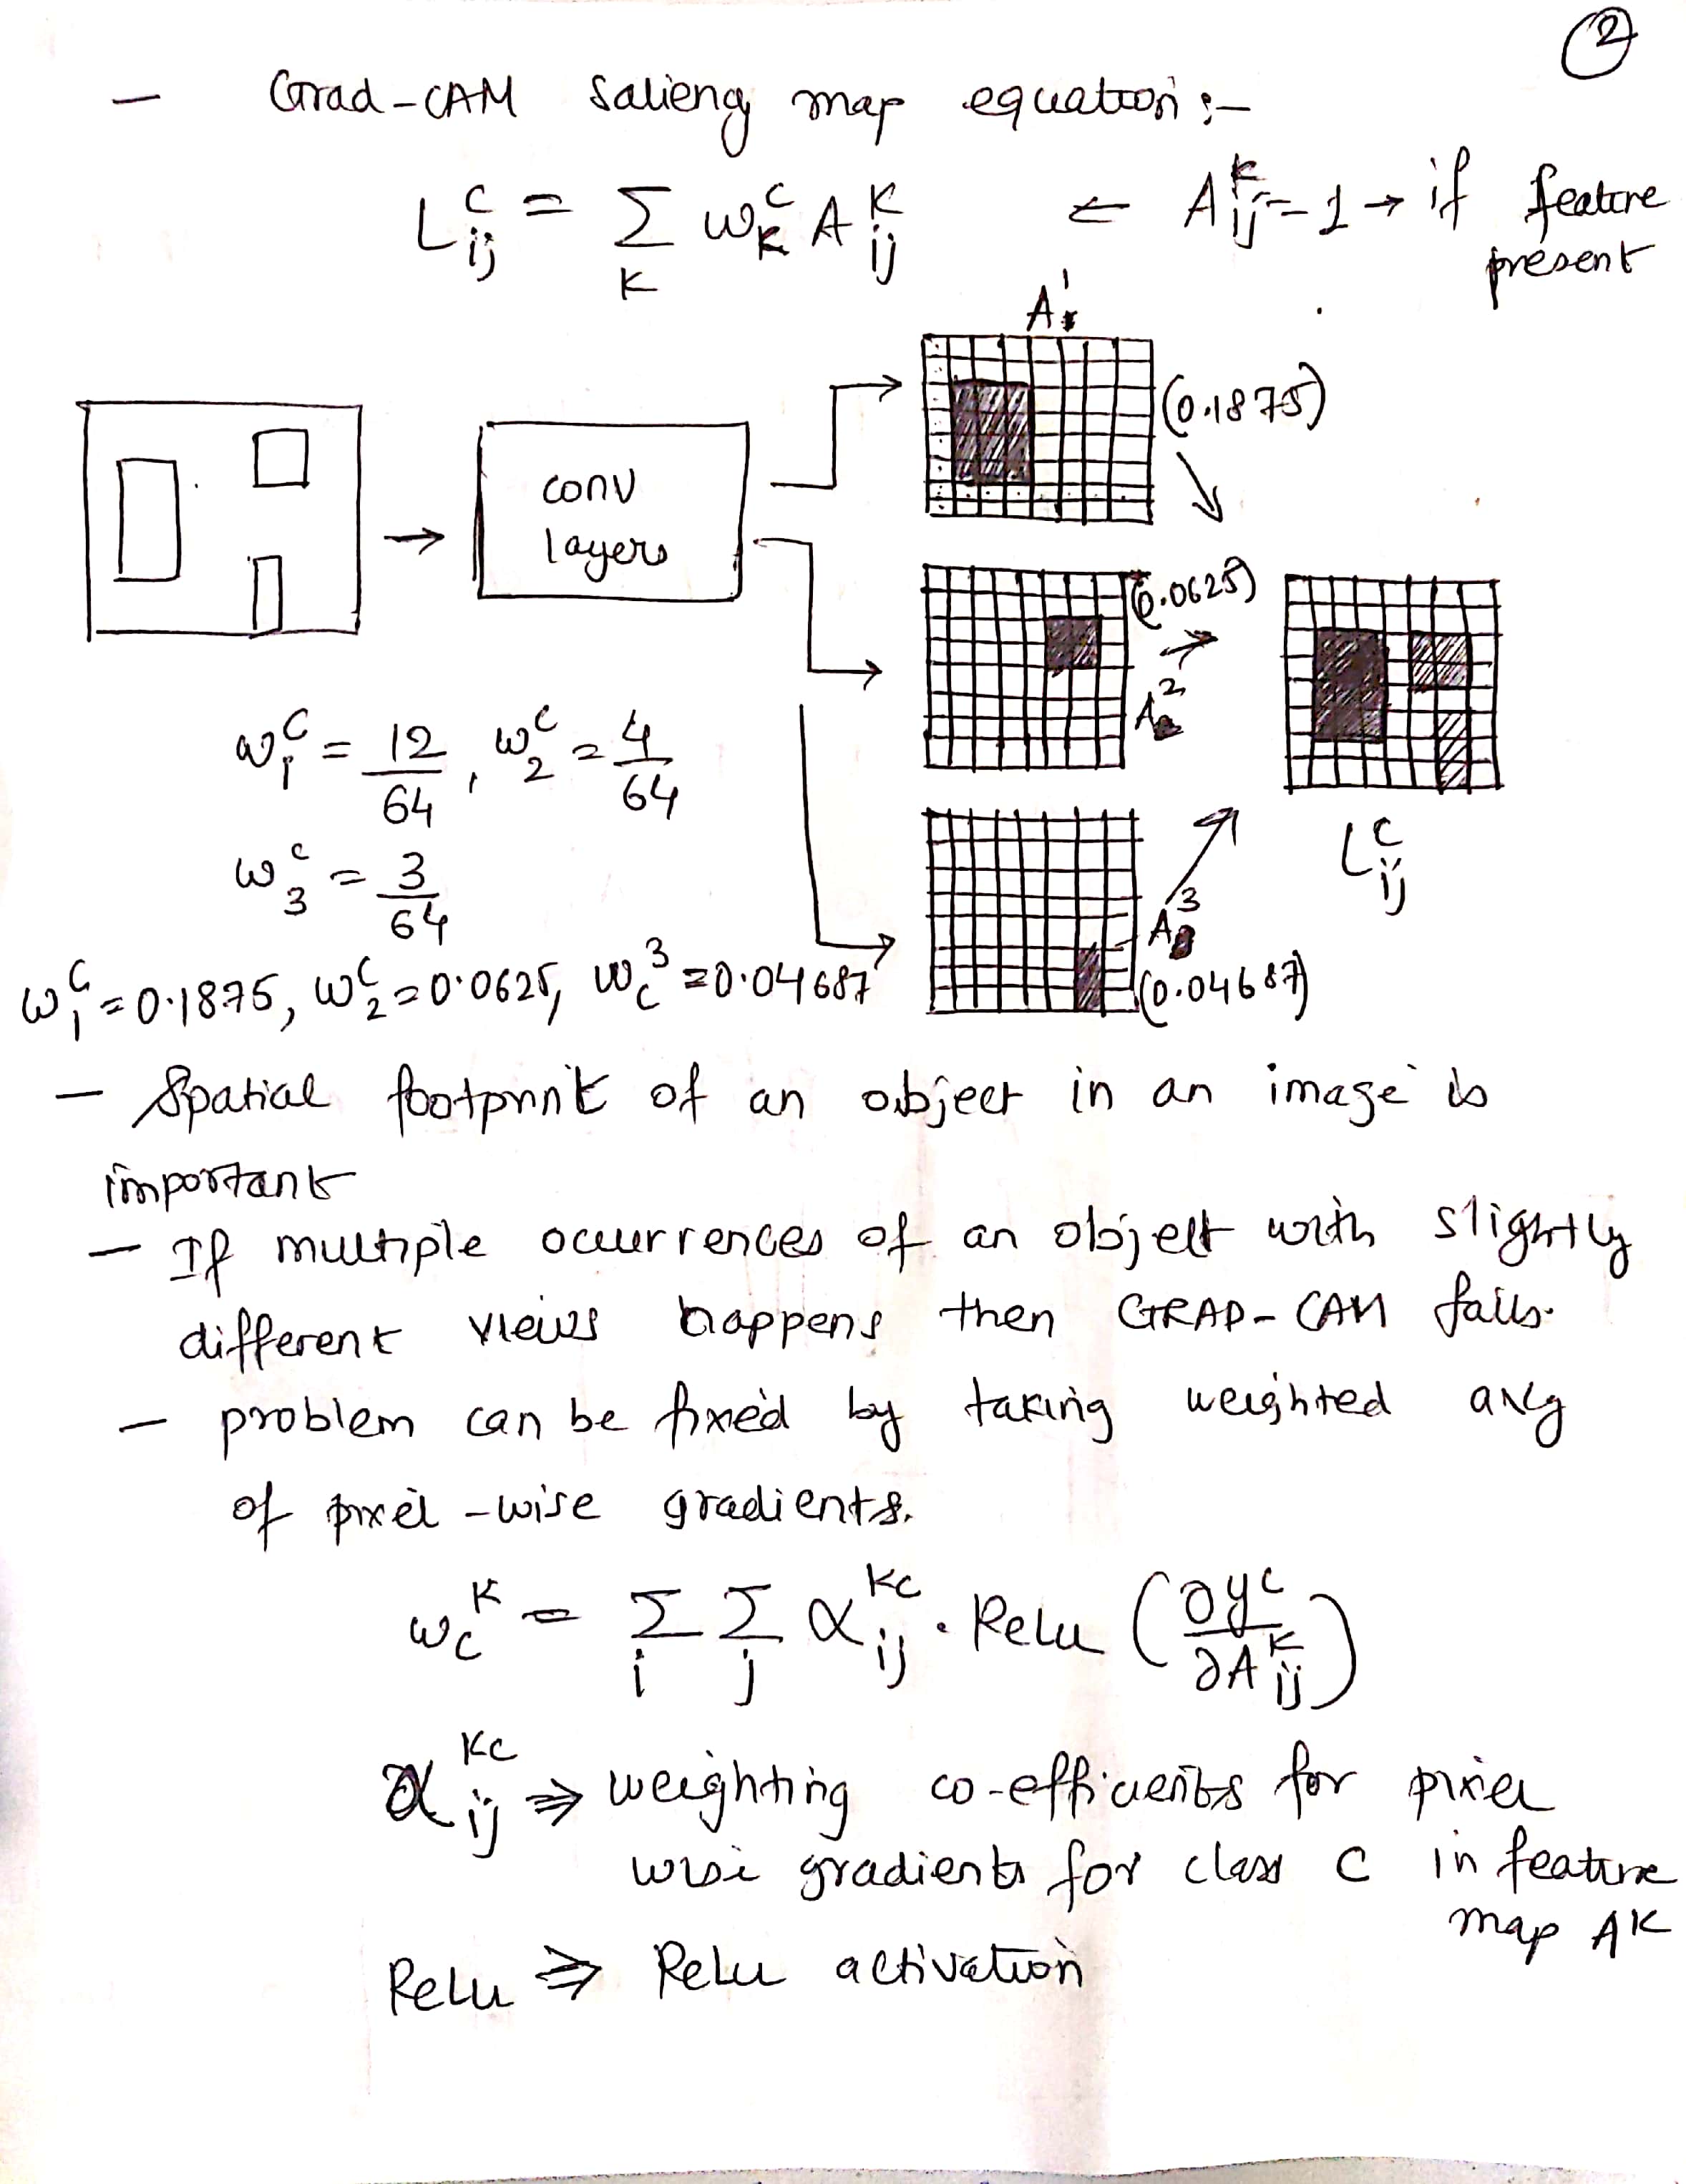 2
— Grad-CAM Saliency map equation :-
L^c_ij = Σ_k w^c_k A^k_ij ← A^k_ij = 1 → if feature
present
A^1
(0.1875)
conv
layers
(0.0625)
A^2
w^c_1 = 12/64, w^c_2 = 4/64
w^c_3 = 3/64
L^c_ij
A^3
w^c_1 = 0.1875, w^c_2 = 0.0625, w^3_c = 0.04687
(0.04687)
— Spatial footprint of an object in an image is
important
— If multiple occurrences of an object with slightly
different views happens then GRAD-CAM fails.
— problem can be fixed by taking weighted avg
of pixel-wise gradients.
w^k_c = Σ_i Σ_j α^kc_ij . Relu (∂y^c/∂A^k_ij)
α^kc_ij ⇒ weighting co-efficients for pixel
wise gradients for class C in feature
map A^k
Relu ⇒ Relu activation